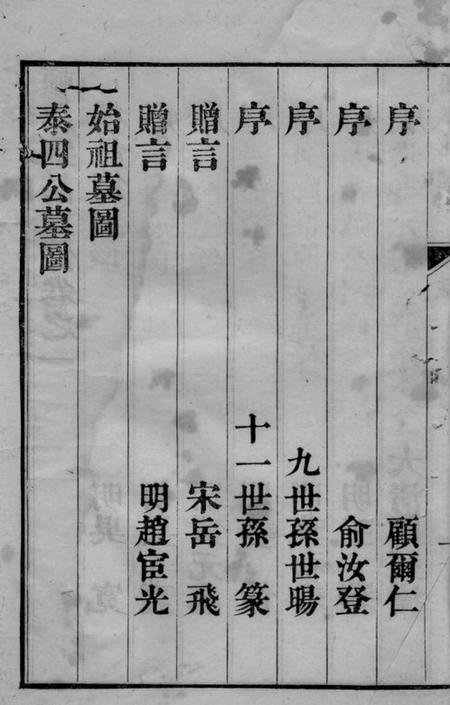 序 顧爾仁
序 俞汝登
序 九世孫世暘
序 十一世孫 篆
贈言 宋岳飛
贈言 明趙宧光
始祖墓圖
泰四公墓圖